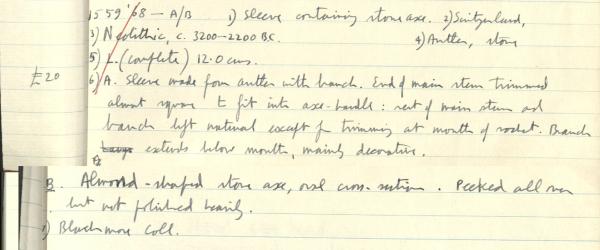 1559'68 – A/B 1) Sleeve containing stone axe. 2) Switzerland,
3) Neolithic, c. 3200–2200 BC. 4) Antler, stone
5) L. (complete) 12.0 cms.
£20
6) A. Sleeve made from antler with branch. End of main stem trimmed
almost square to fit into axe-handle: rest of main stem and
branch left natural except for trimming at mouth of socket. Branch
extends below mouth, mainly decorative.
B. Almond-shaped stone axe, oval cross-section. Pecked all over
but not polished heavily.
Blackmore Coll.